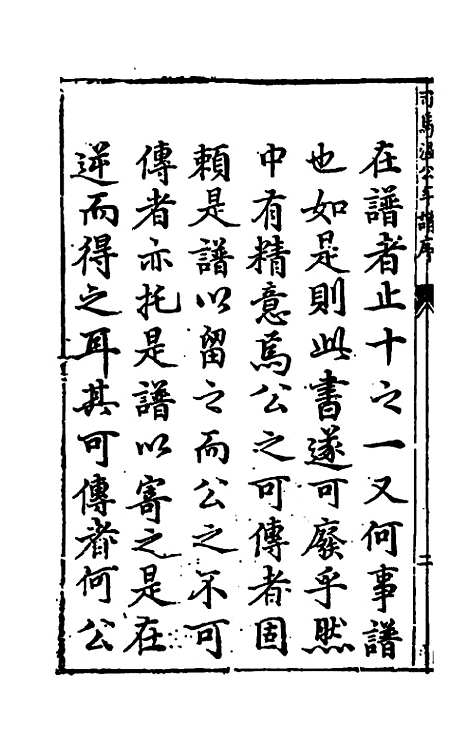 司馬溫公年譜序
二
在譜者止十之一又何事譜
也如是則此書遂可廢乎然
中有精意焉公之可傳者固
賴是譜以留之而公之不可
傳者亦托是譜以寄之是在
逆而得之耳其可傳者何公